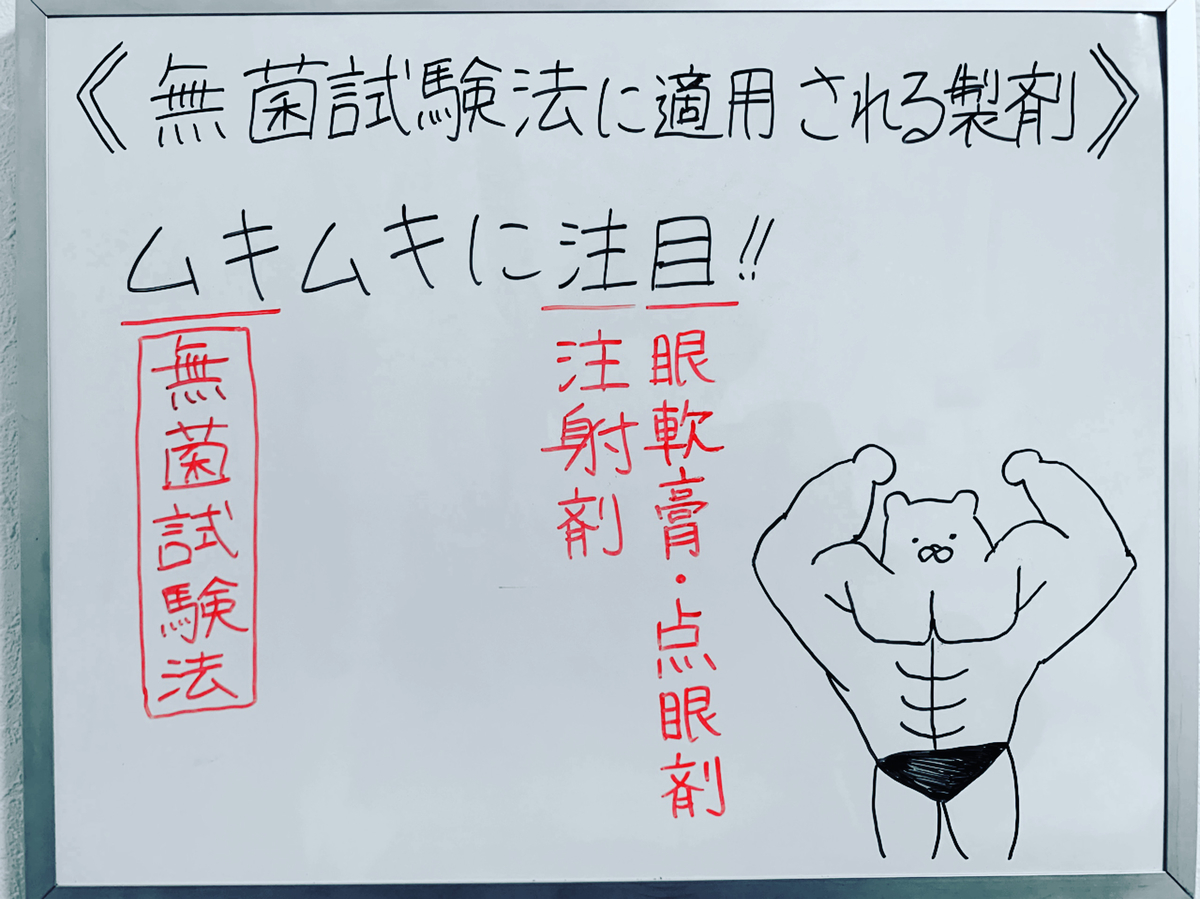 《無菌試験法に適用される製剤》
ムキムキに注目!!
無菌試験法
注射剤
眼軟膏・点眼剤